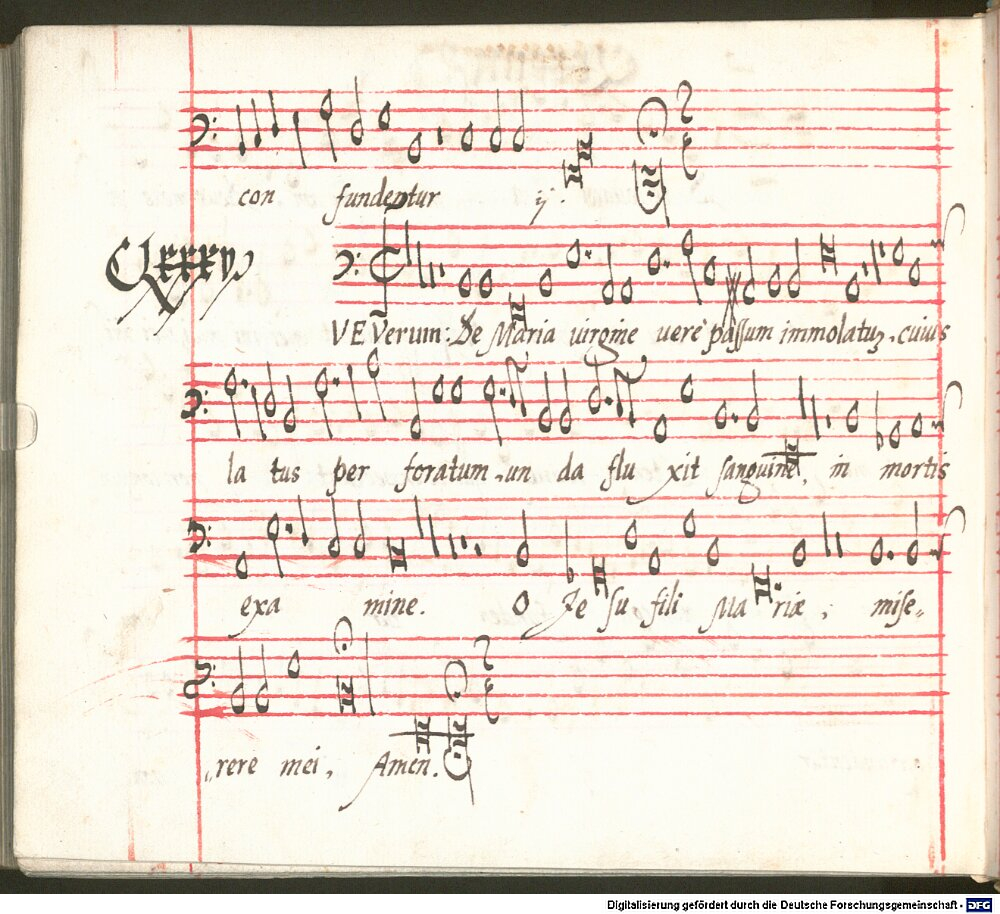 con fundentur ij.
CLXXXV
VE Verum: De Maria uirgine uere passum immolatuz, cuius
la tus per foratum, un da flu xit sanguine, in mortis
exa mine. O Je su fili Ma riæ, mise„
„rere mei, Amen.
Digitalisierung gefördert durch die Deutsche Forschungsgemeinschaft - DFG